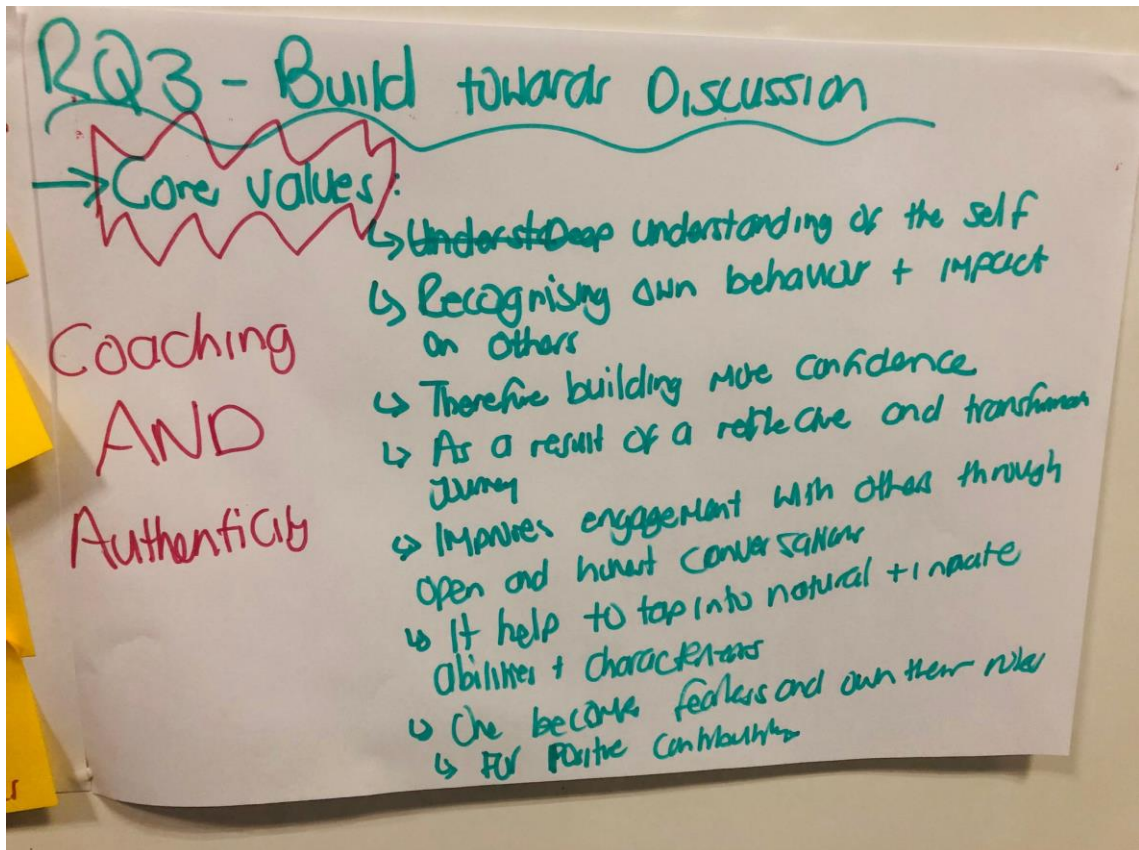 RQ3 - Build towards Discussion
→ Core values:
↳ Underst Deep understanding of the self
↳ Recognising own behaviour + impact
on others
Coaching
AND
Authenticity
↳ Therefore building more confidence
↳ As a result of a reflective and
journey
↳ Improves engagement with others through
open and honest conversations
↳ It help to tap into natural + innate
abilities + characteristics
↳ One become fearless and own their roles
↳ For positive